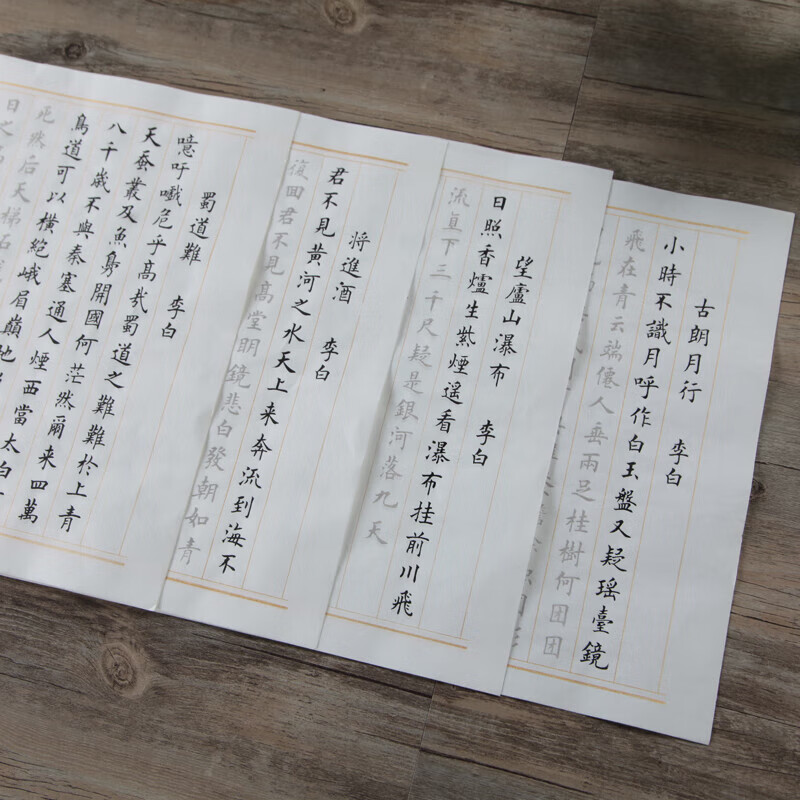 古朗月行 李白
小時不識月呼作白玉盤又疑瑤臺鏡
飛在青云端僊人垂兩足桂樹何团团
望廬山瀑布 李白
日照香爐生紫煙遥看瀑布挂前川飛
流直下三千尺疑是銀河落九天
将進酒 李白
君不見黄河之水天上来奔流到海不
復回君不見高堂明鏡悲白發朝如青
蜀道難 李白
噫吁嚱危乎髙哉蜀道之難難於上青
天蚕叢及魚鳧開國何茫然爾来四萬
八千嵗不與秦塞通人煙西當太白
鳥道可以橫絶峨眉巔地
死然后天梯石